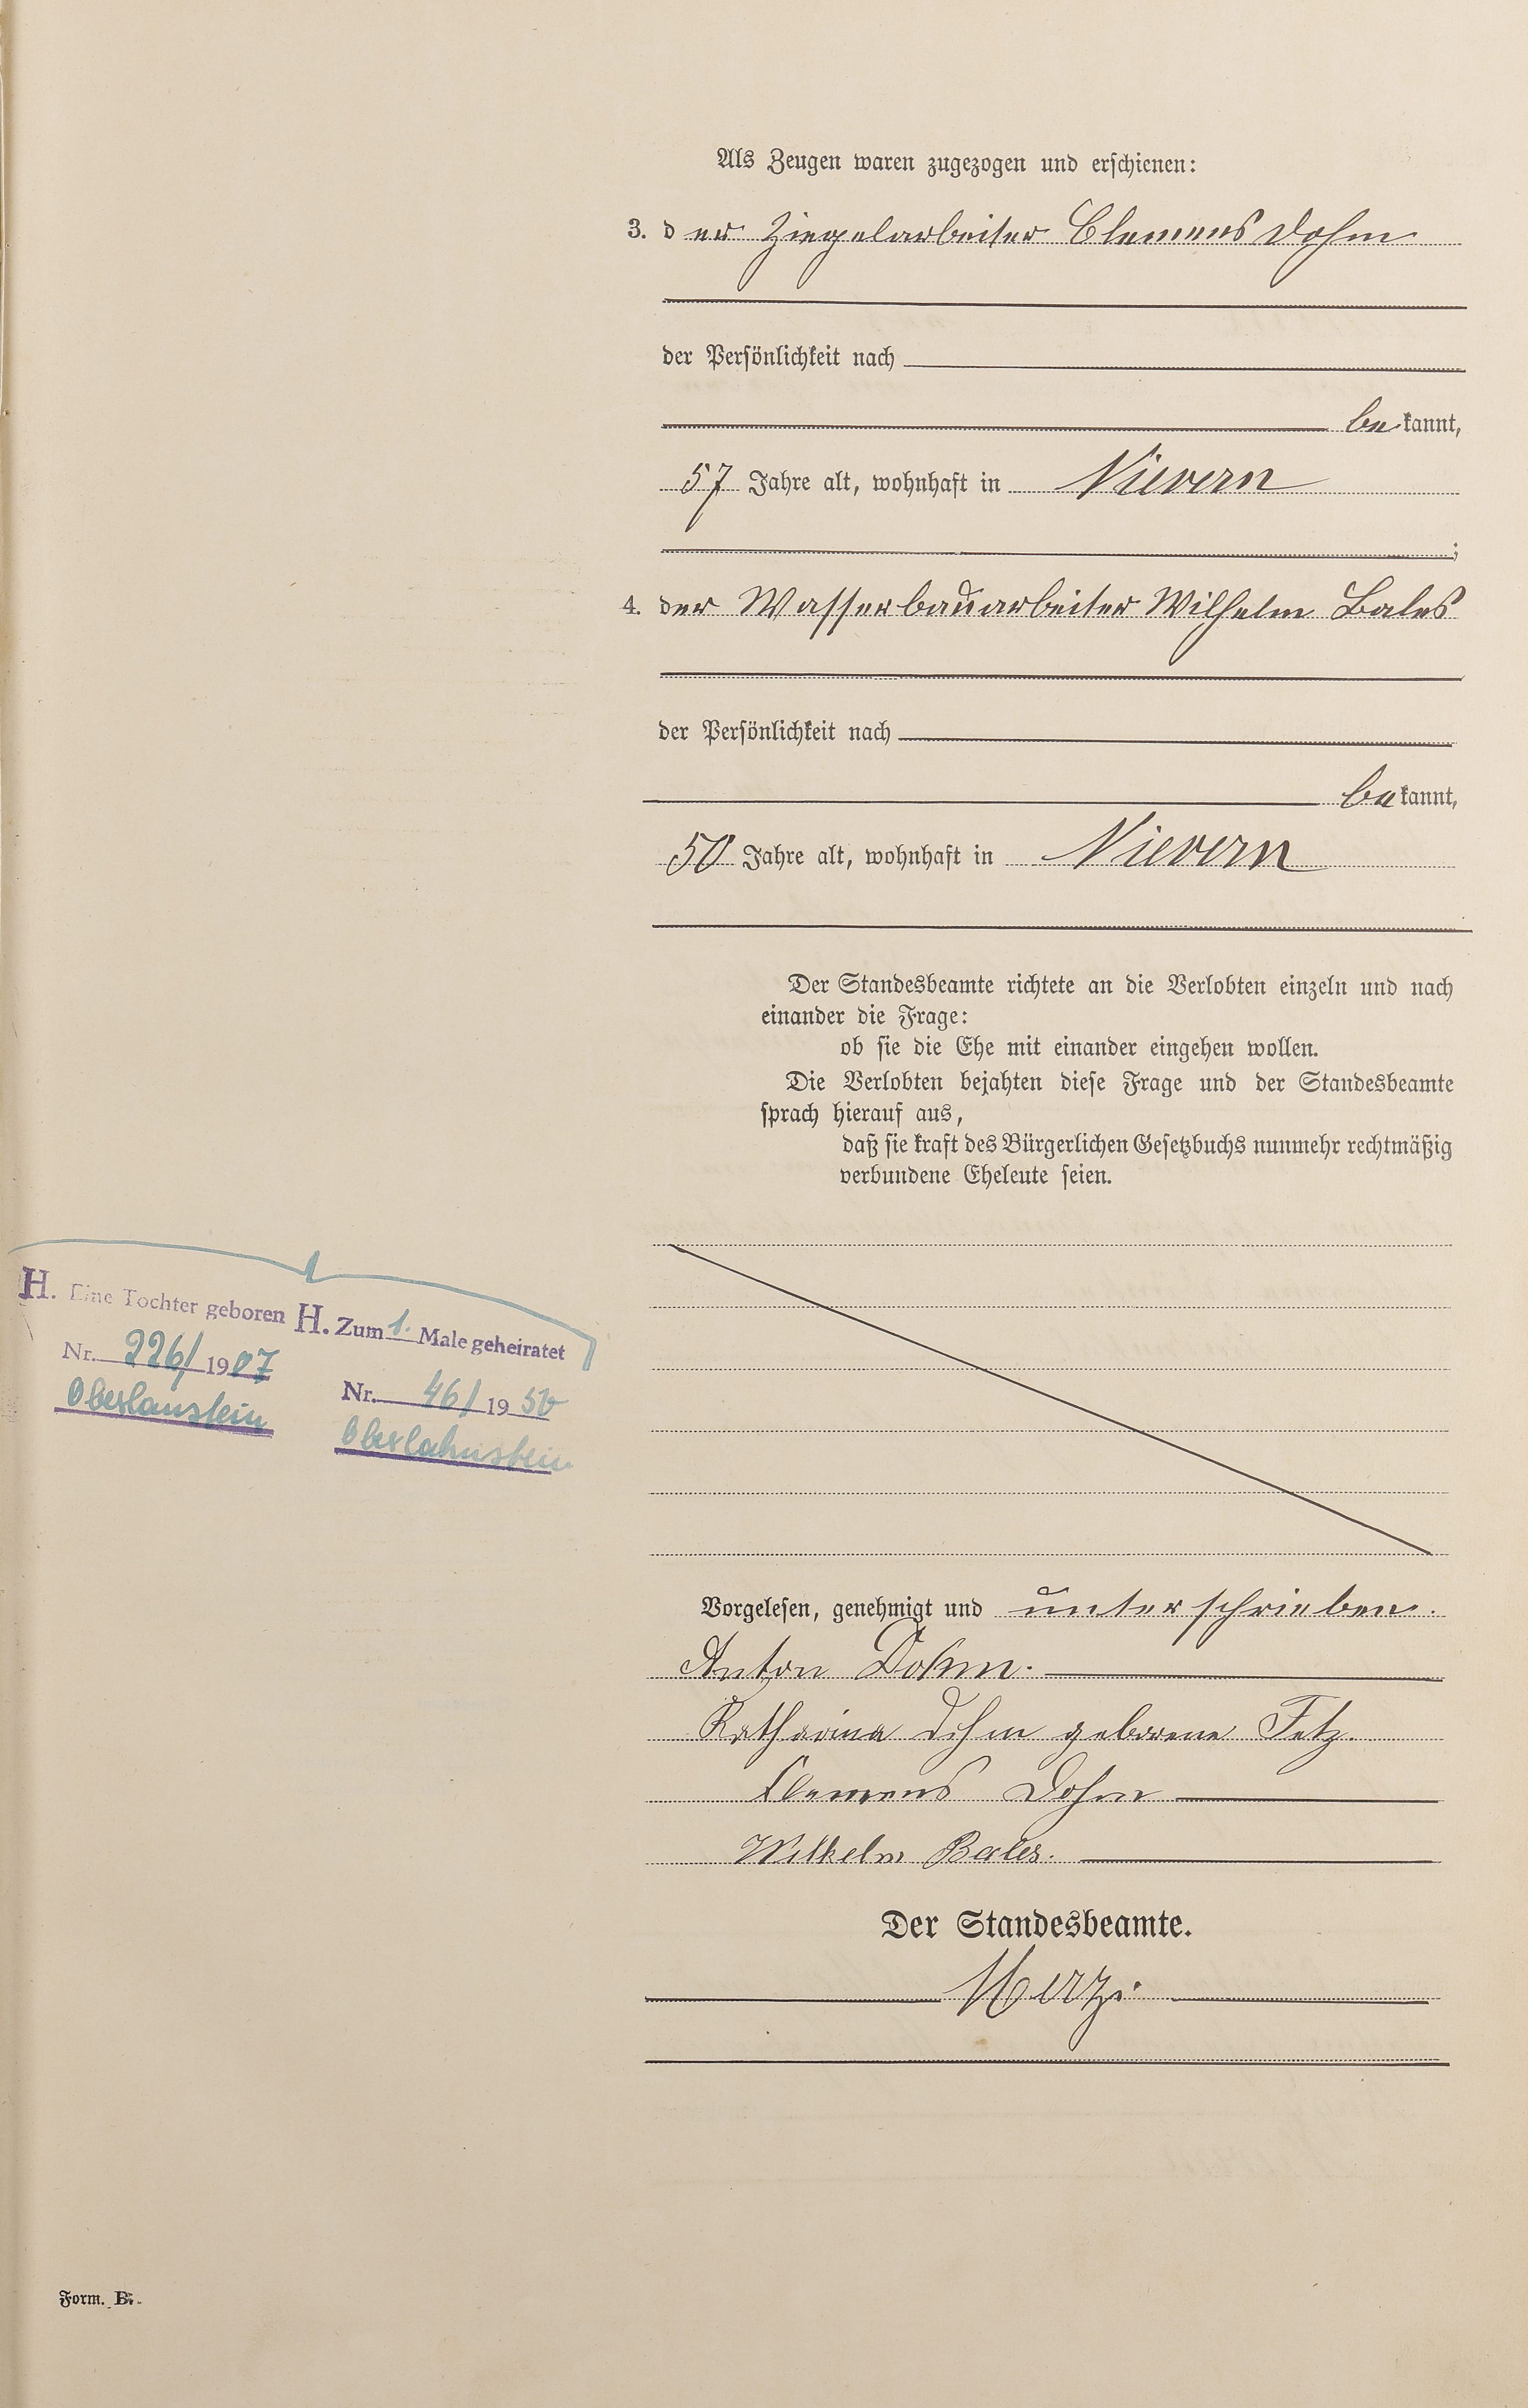 Als Zeugen waren zugezogen und erschienen:
3. der Ziegelarbeiter Clemens Dohm
der Persönlichkeit nach
bekannt,
57 Jahre alt, wohnhaft in Nievern
;
4. der Wasserbauarbeiter Wilhelm Bales
der Persönlichkeit nach
bekannt,
50 Jahre alt, wohnhaft in Nievern
Der Standesbeamte richtete an die Verlobten einzeln und nach
einander die Frage:
ob sie die Ehe mit einander eingehen wollen.
Die Verlobten bejahten diese Frage und der Standesbeamte
sprach hierauf aus,
daß sie kraft des Bürgerlichen Gesetzbuchs nunmehr rechtmäßig
verbundene Eheleute seien.
H. Eine Tochter geboren
Nr. 226/1907
Oberlanstein
H. Zum 1. Male geheiratet
Nr. 46/1950
Oberlahnstein
Vorgelesen, genehmigt und unterschrieben.
Anton Dohm.
Katharina Dohm geborene Fetz.
Clemens Dohm
Wilhelm Bales.
Der Standesbeamte.
Form. B.